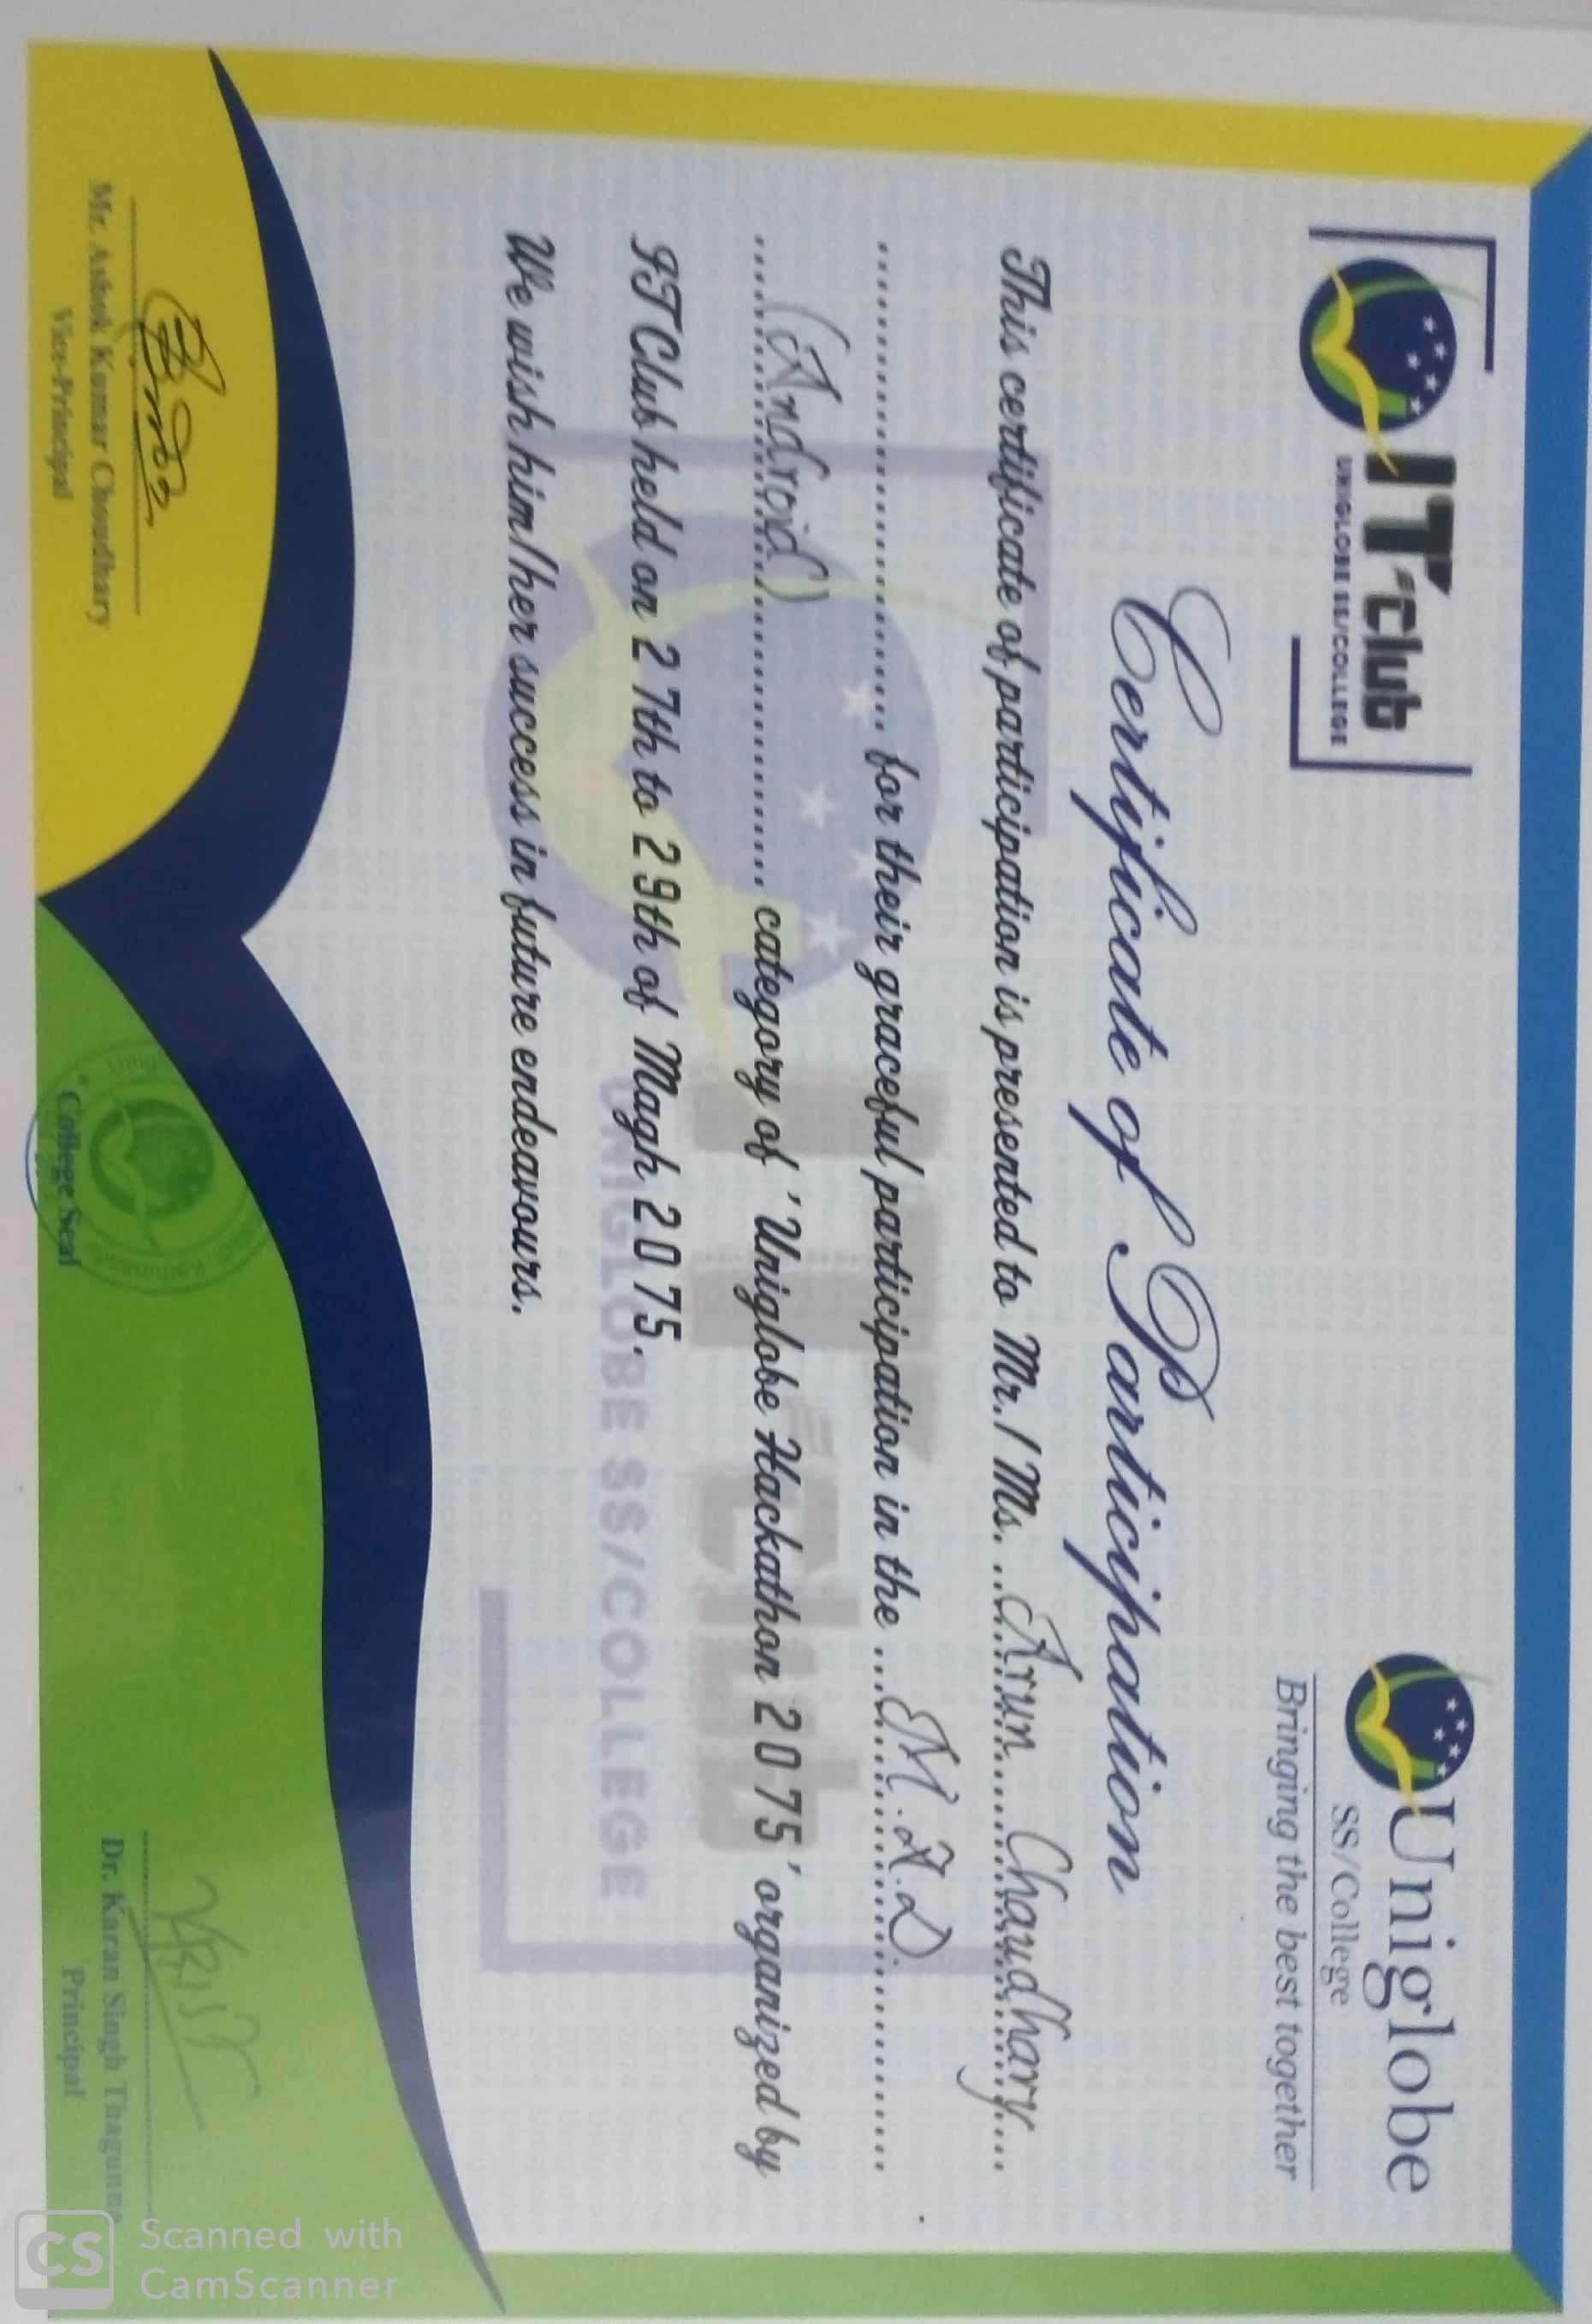 IT-club
UNIGLOBE SS/COLLEGE
Uniglobe
SS/College
Bringing the best together
Certificate of Participation
This certificate of participation is presented to Mr. / Ms. ...Arun....Chaudhary....
................................ for their graceful participation in the ...M.A.D...............
......(Android)........................ category of 'Uniglobe Hackathon 2075' organized by
IT Club held on 27th to 29th of Magh 2075.
We wish him/her success in future endeavours.
Mr. Ashok Kumar Choudhary
Vice-Principal
College Seal
Dr. Karan Singh Thagunna
Principal
Scanned with
CamScanner
CS